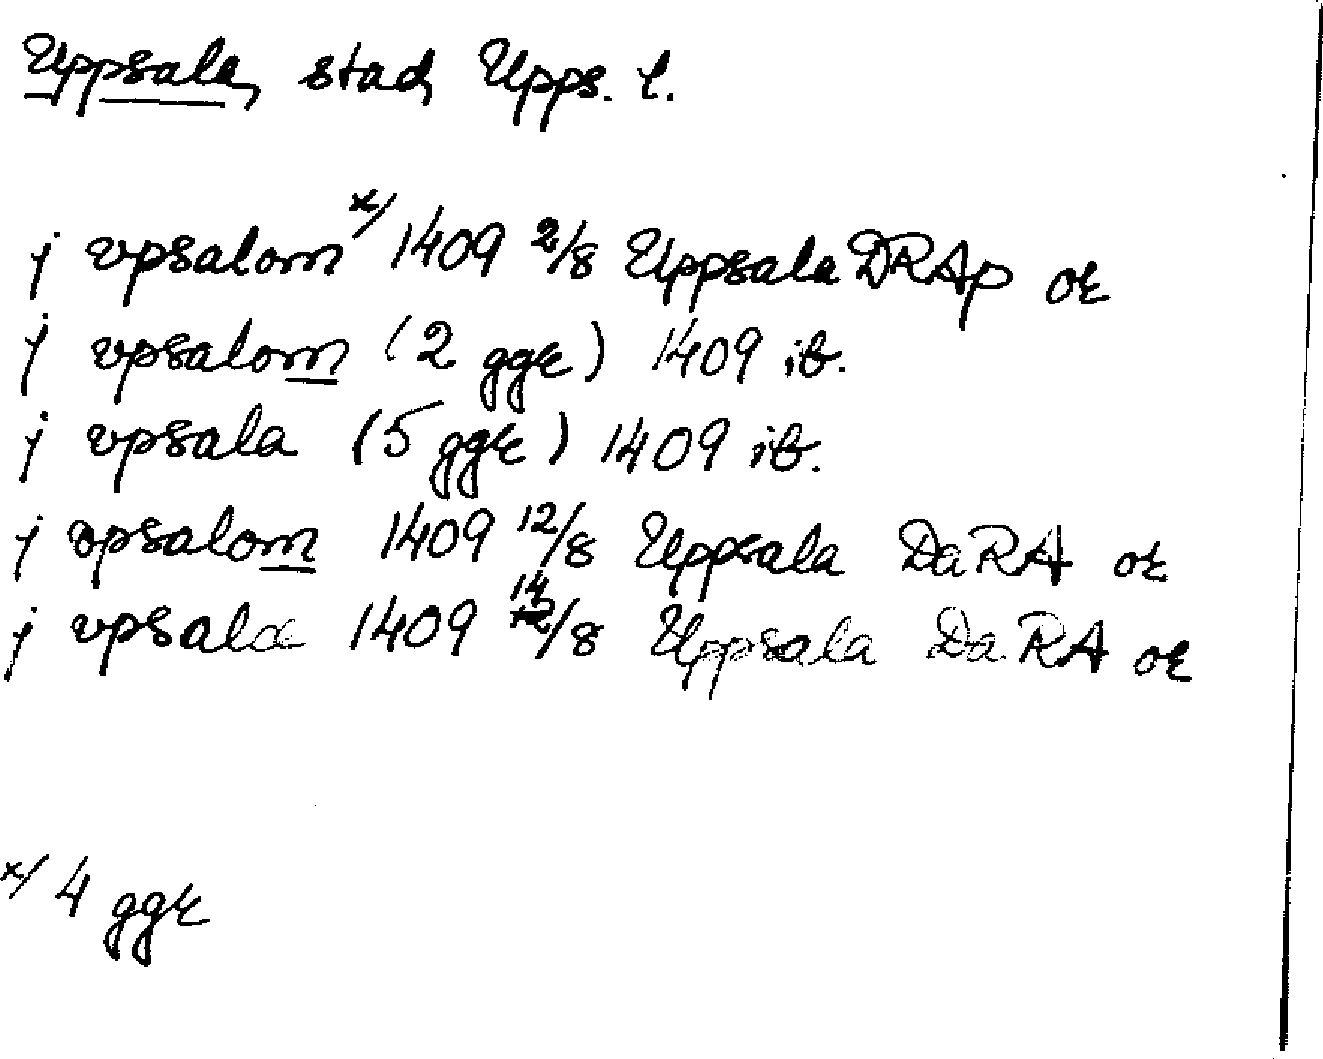 Uppsala, stad, Upps. l.
j vpsalom x/ 1409 2/8 Uppsala DRAp or
j vpsalom (2 ggr) 1409 ib.
j vpsala (5 ggr) 1409 ib.
j opsalom 1409 12/8 Uppsala DaRA or
j vpsala 1409 14/8 Uppsala DaRA or
x/ 4 ggr